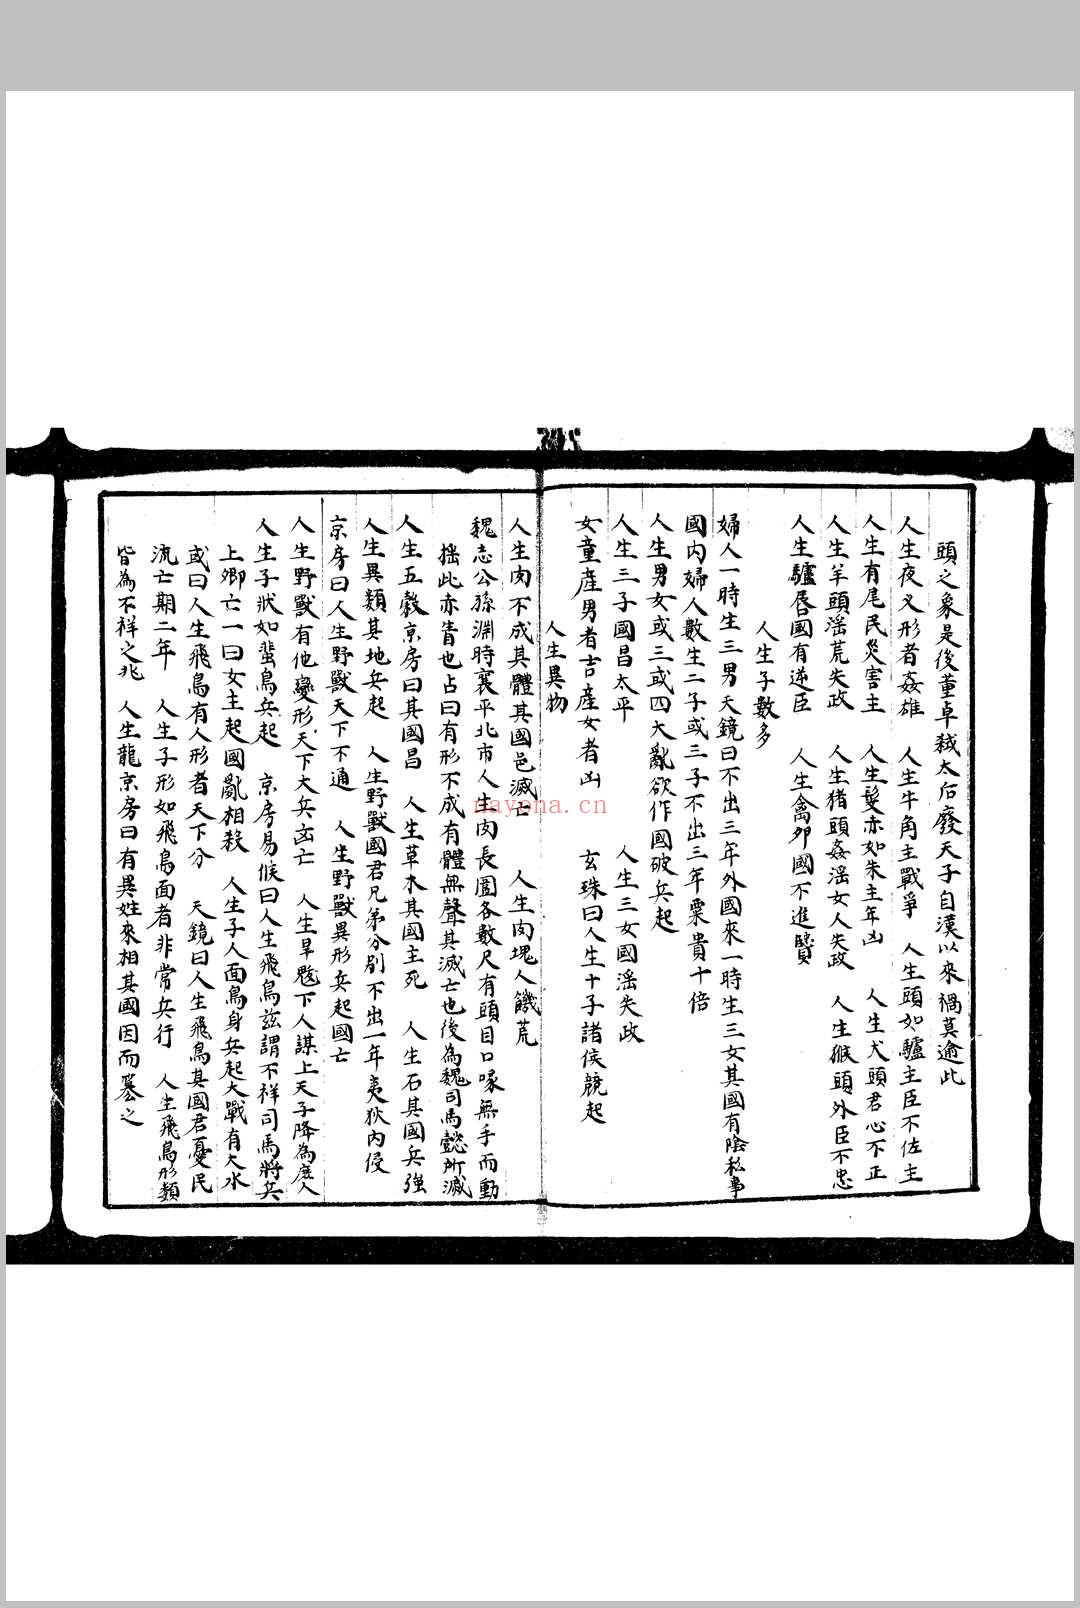 頭之象是後董卓弑太后廢天子自漢以來禍莫逾此
人生夜义形者姦雄　人生牛角主戰爭　人生頭如驢主臣不佐主
人生有尾民災害主　人生髮赤如朱主年凶　人生犬頭君心不正
人生羊頭淫荒失政　人生猪頭姦淫女人失政　人生猴頭外臣不忠
人生驢唇國有逆臣　人生禽卵國不進賢
人生子數多
婦人一時生三男天鏡曰不出三年外國來一時生三女其國有陰私事
國内婦人數生二子或三子不出三年粟貴十倍
人生男女或三或四大亂欲作國破兵起
人生三子國昌太平　人生三女國淫失政
女童産男者吉産女者凶　玄珠曰人生十子諸侯競起
人生異物
人生肉不成其體其國邑滅亡　人生肉塊人饑荒
魏志公孫淵時襄平北市人生肉長圍各數尺有頭目口喙無手而動
搖此亦眚也占曰有形不成有體無聲其滅亡也後為魏司馬懿所滅
人生五穀京房曰其國昌　人生草木其國主死　人生石其國兵強
人生異類其地兵起　人生野獸國君兄弟分別不出一年夷狄内侵
京房曰人生野獸天下不通　人生野獸異形兵起國亡
人生野獸有他變形天下大兵亟亡　人生旱魃下人謀上天子降為庶人
人生子狀如蜚鳥兵起　京房易候曰人生飛鳥兹謂不祥司馬將兵
上卿亡一曰女主起國亂相殺　人生子人面鳥身兵起大戰有大水
或曰人生飛鳥有人形者天下分　天鏡曰人生飛鳥其國君憂民
流亡期二年　人生子形如飛鳥面者非常兵行　人生飛鳥形類
皆為不祥之兆　人生龍京房曰有異姓來相其國因而簒之
nayona.cn